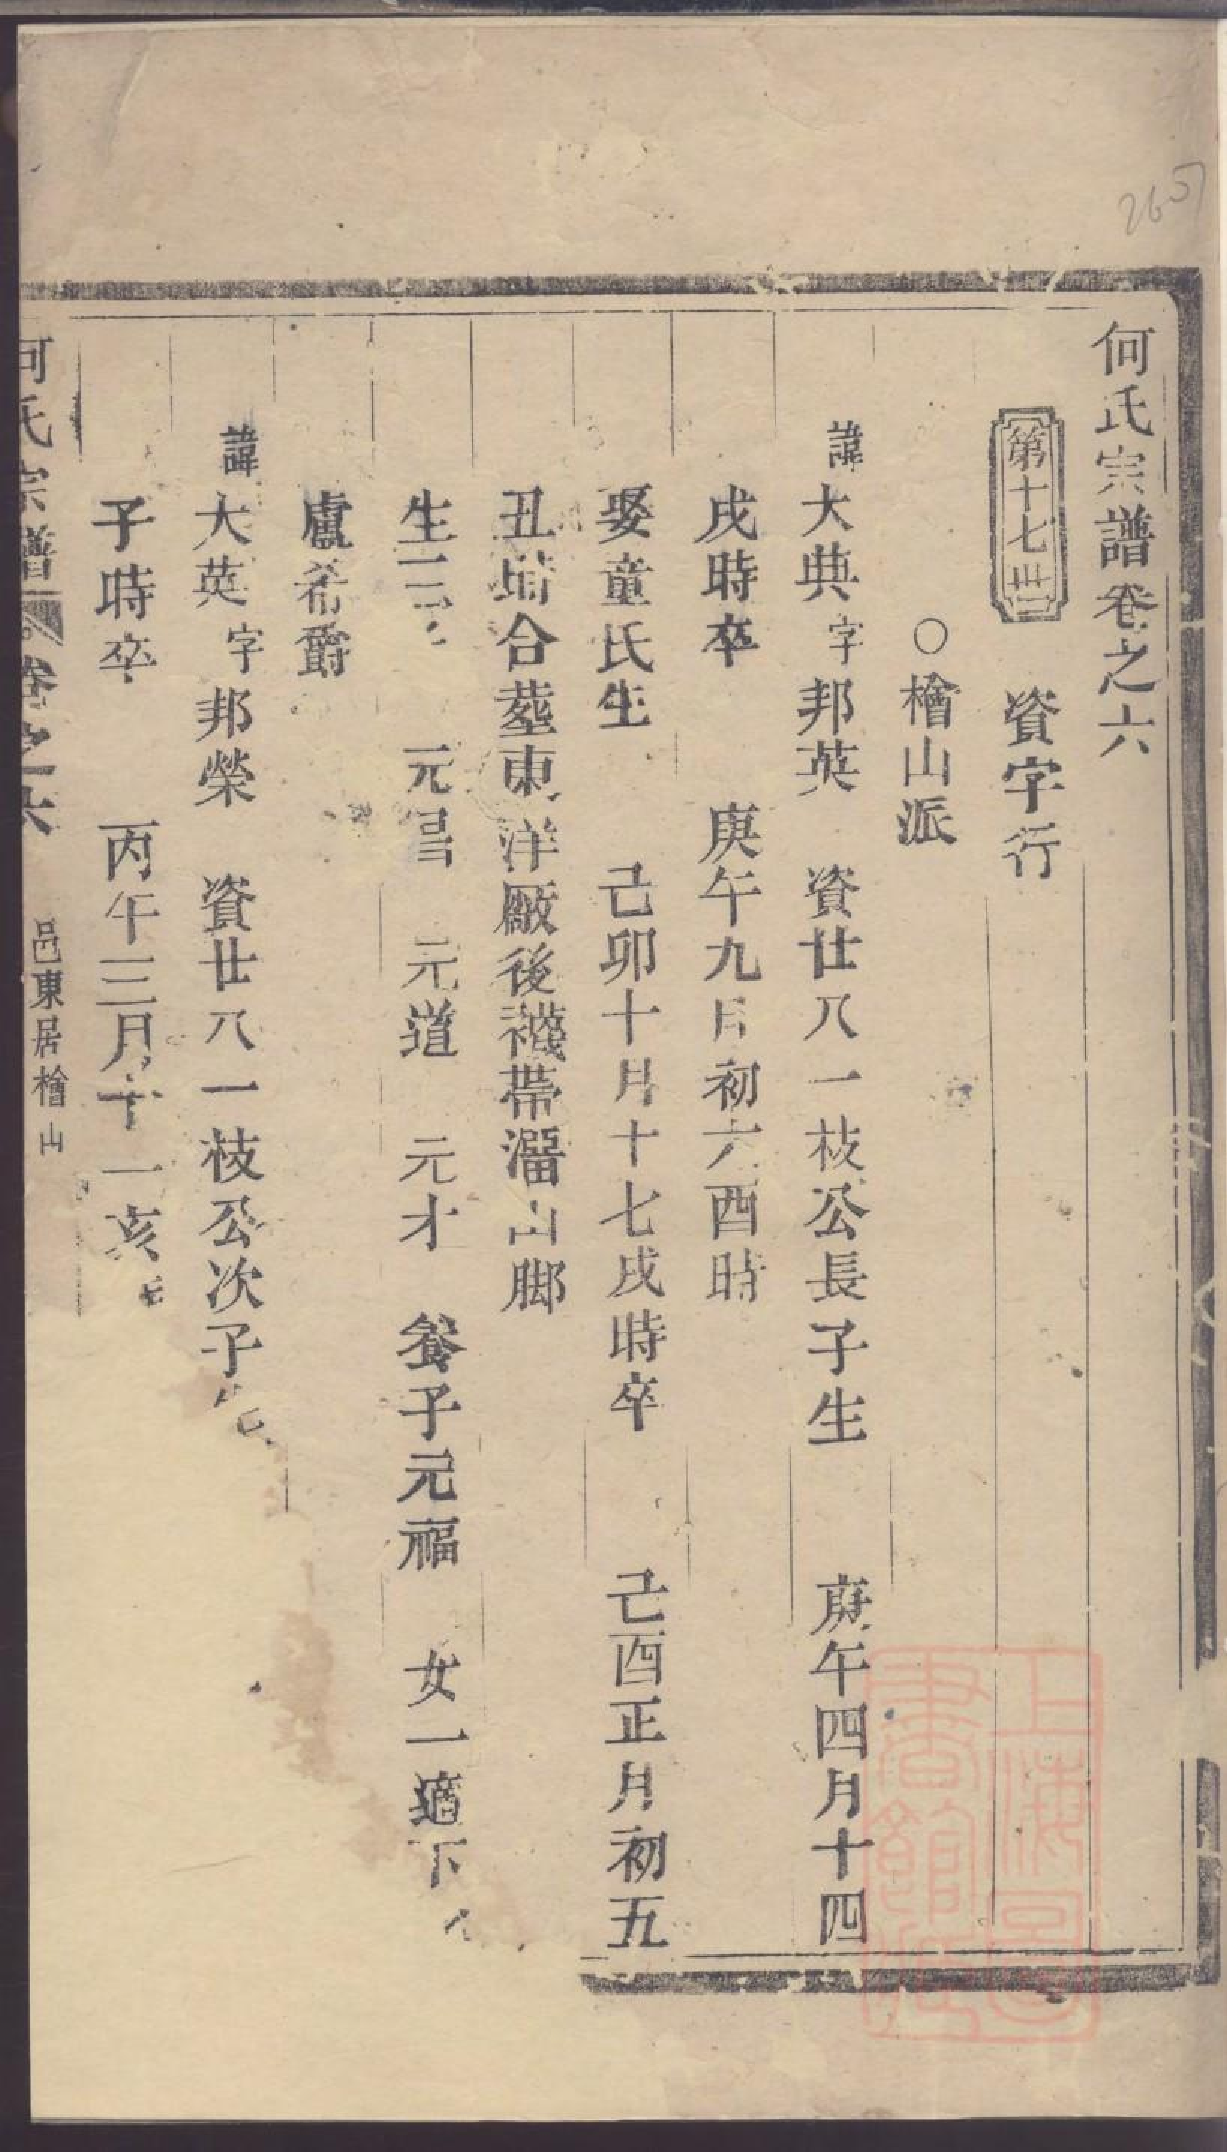 何氏宗譜卷之六
第十七世 資字行
○檜山派
諱大典字邦英 資廿八一枝公長子生 庚午四月十四
戌時卒 庚午九月初六酉時
娶童氏生 己卯十月十七戌時卒 己酉正月初五
丑時合塟東洋廠後襪帶溜山脚
生三子 元昌 元道 元才 養子元福 女一適下
盧希爵
諱大英字邦榮 資廿八一枝公次子
子時卒 丙午三月十一亥
何氏宗譜 卷之六 邑東居檜山
265
上海圖書館藏